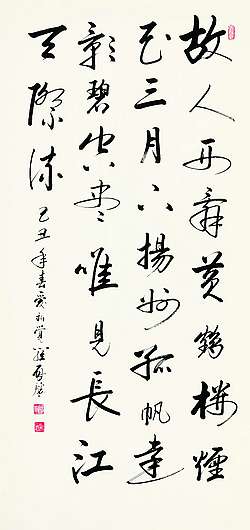 故人西辭黃鶴樓煙
花三月下揚州孤帆遠
影碧空盡唯見長江
天際流 己丑年春愛新覺羅